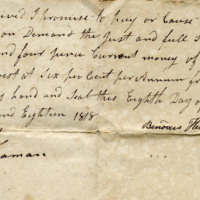 I Promise to pay or Cause
on Demand the Just and full S
and four pence Current money of
est at Six per Cent per Annum fr
hand and Seal this Eighth Day o
Eighteen 1818
Benoni
aman